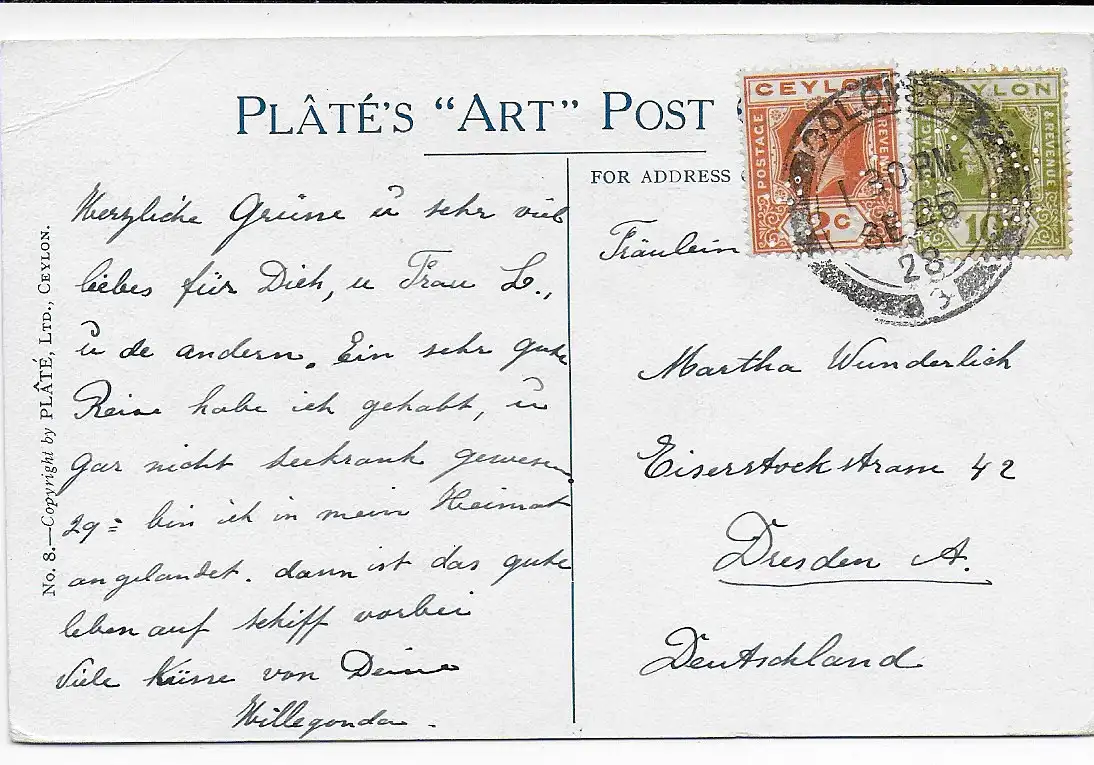 PLÂTÉ'S "ART" POST
FOR ADDRESS
No. 8.—Copyright by PLÂTÉ, LTD., CEYLON.
CEYLON
POSTAGE
& REVENUE
2C
CEYLON
& REVENUE
10
COLOMBO
1 30 PM
SE 25
28
3
Herzliche Grüsse u sehr viel
liebes für Dich, u Frau L.,
u de andern. Ein sehr gute
Reise habe ich gehabt, u
gar nicht seekrank gewesen
29= bin ich in mein Heimat
angelandet. dann ist das gute
leben auf schiff vorbei
Viele Küsse von Deine
Willegonda.
Fräulein
Martha Wunderlich
Eiserstockstrasse 42
Dresden A.
Deutschland